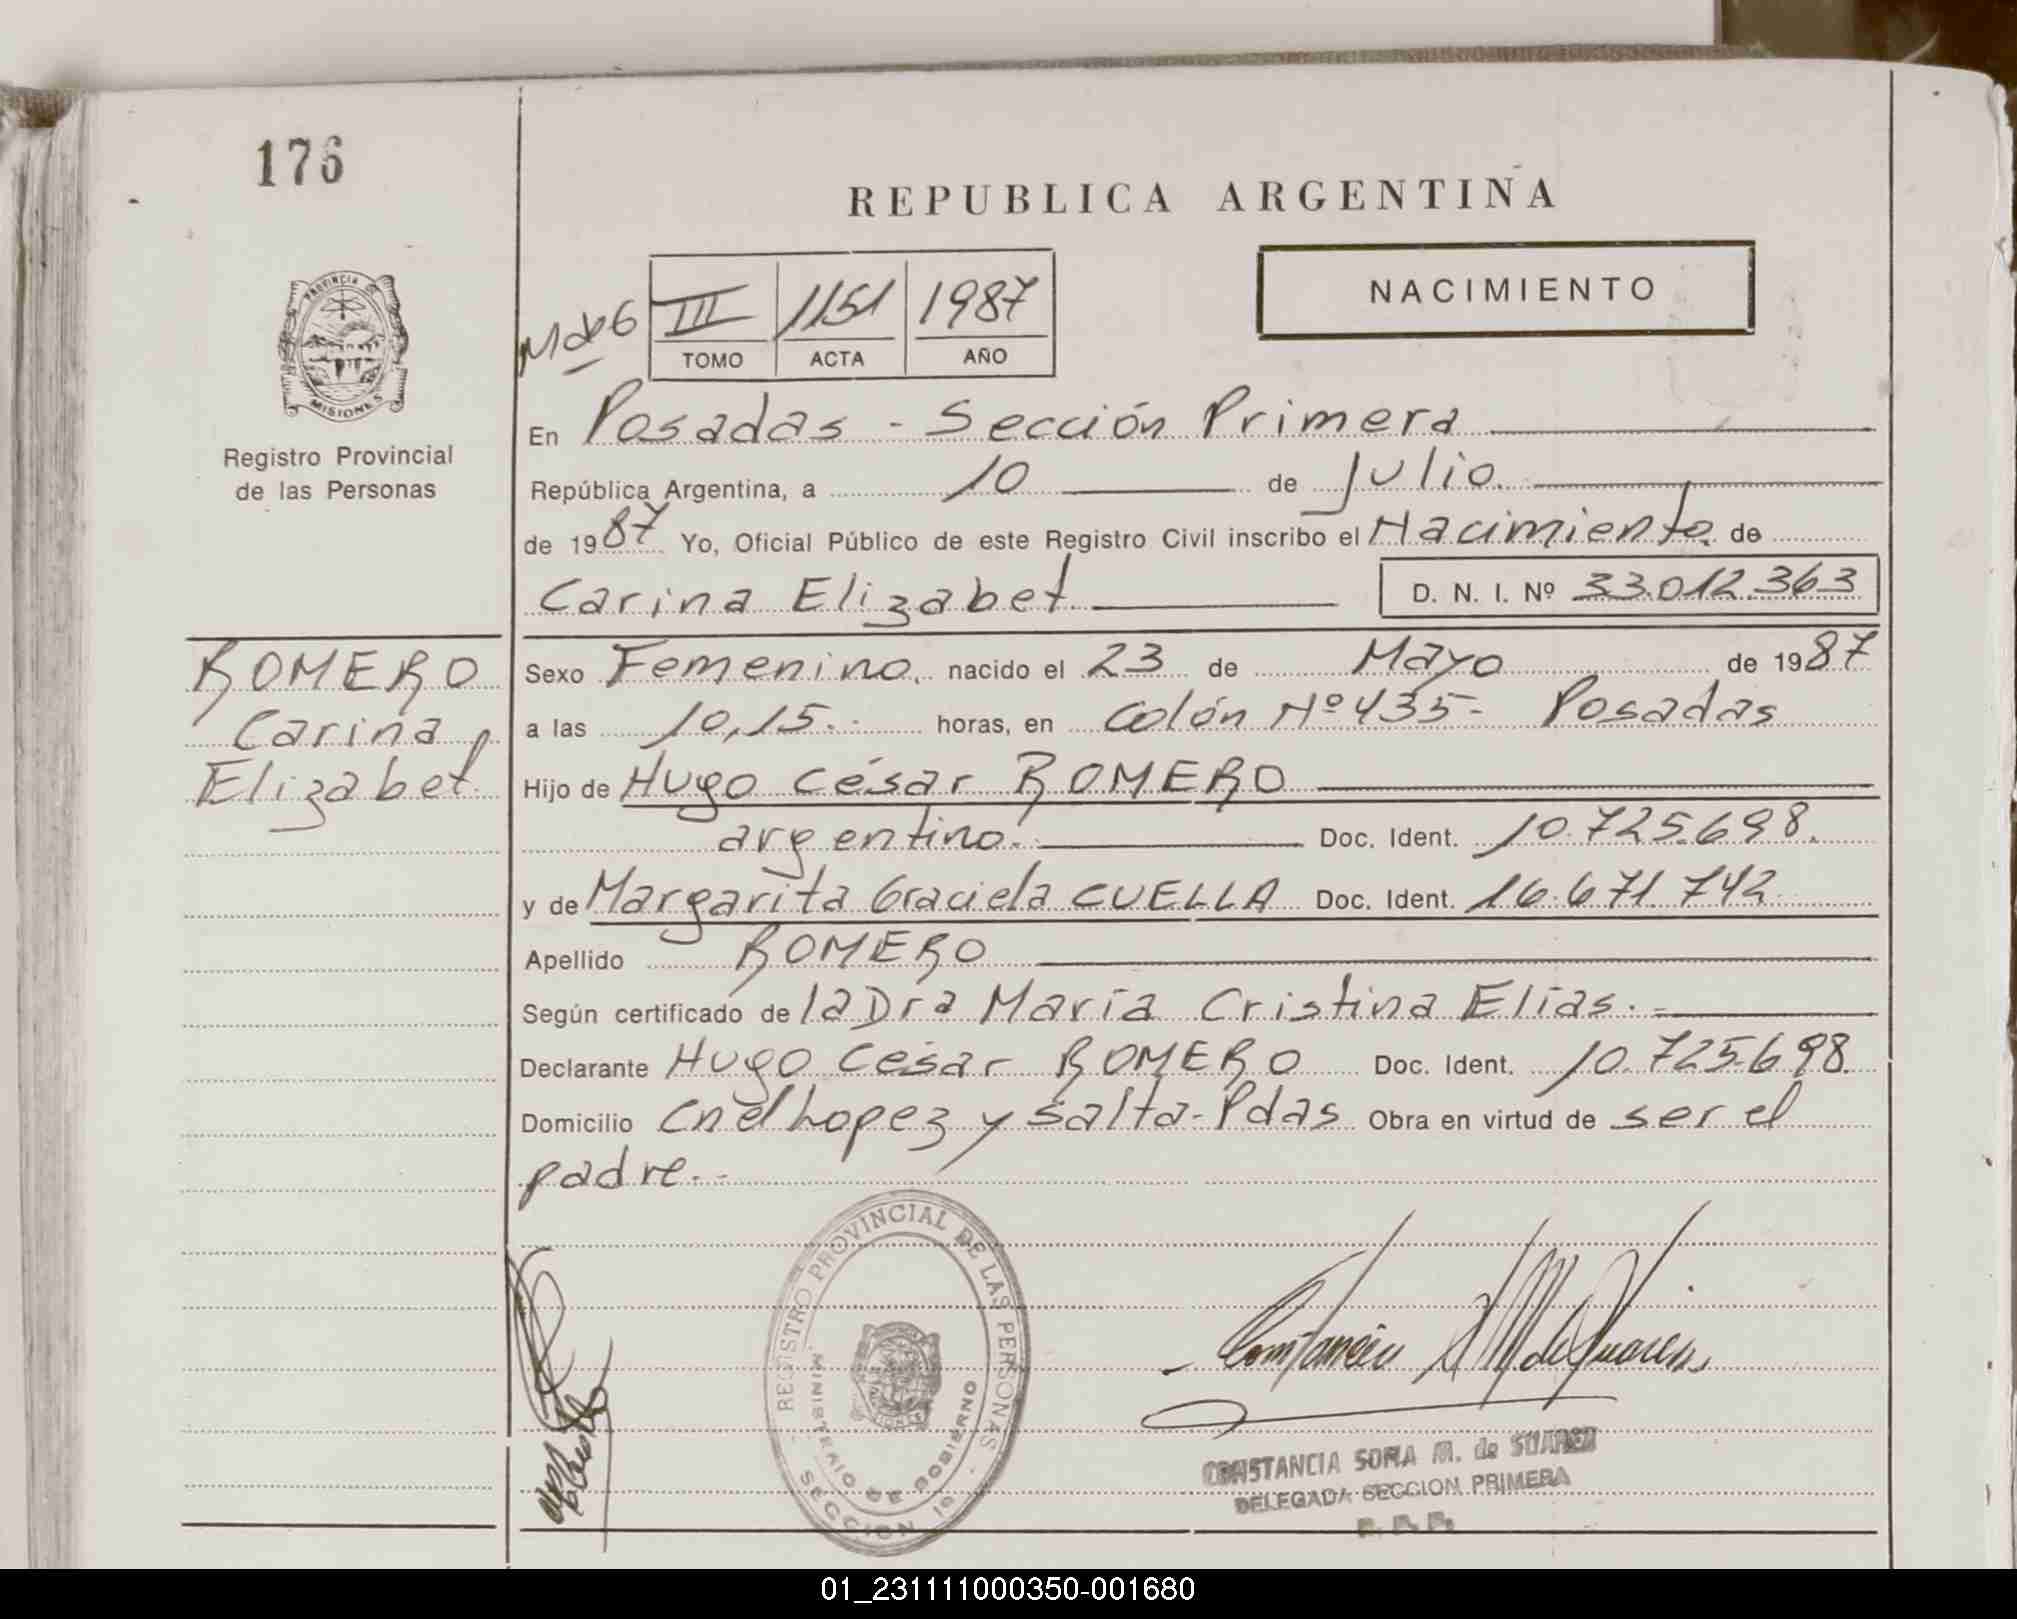 176
REPUBLICA ARGENTINA
NACIMIENTO
III 1151 1987
TOMO ACTA AÑO
PROVINCIA DE
MISIONES
Registro Provincial
de las Personas
En Posadas - Sección Primera
República Argentina, a 10 de Julio.
de 1987 Yo, Oficial Público de este Registro Civil inscribo el Nacimiento. de
Carina Elizabet D. N. I. Nº 33.012.363
ROMERO
Carina
Elizabet
Sexo Femenino. nacido el 23 de Mayo de 1987
a las 10,15. horas, en Colón Nº 435- Posadas
Hijo de Hugo César ROMERO
argentino. Doc. Ident. 10.725.698.
y de Margarita Graciela CUELLA Doc. Ident. 16.671.742
Apellido ROMERO
Según certificado de la Dra María Cristina Elías.
Declarante Hugo César ROMERO Doc. Ident. 10.725.698.
Domicilio Cnel Lopez y Salta-Pdas Obra en virtud de ser el
padre.-
REGISTRO PROVINCIAL DE LAS PERSONAS
MINISTERIO DE GOBIERNO
SECCION 1º
CONSTANCIA SORIA M. de SUAREZ
DELEGADA SECCION PRIMERA
01_231111000350-001680